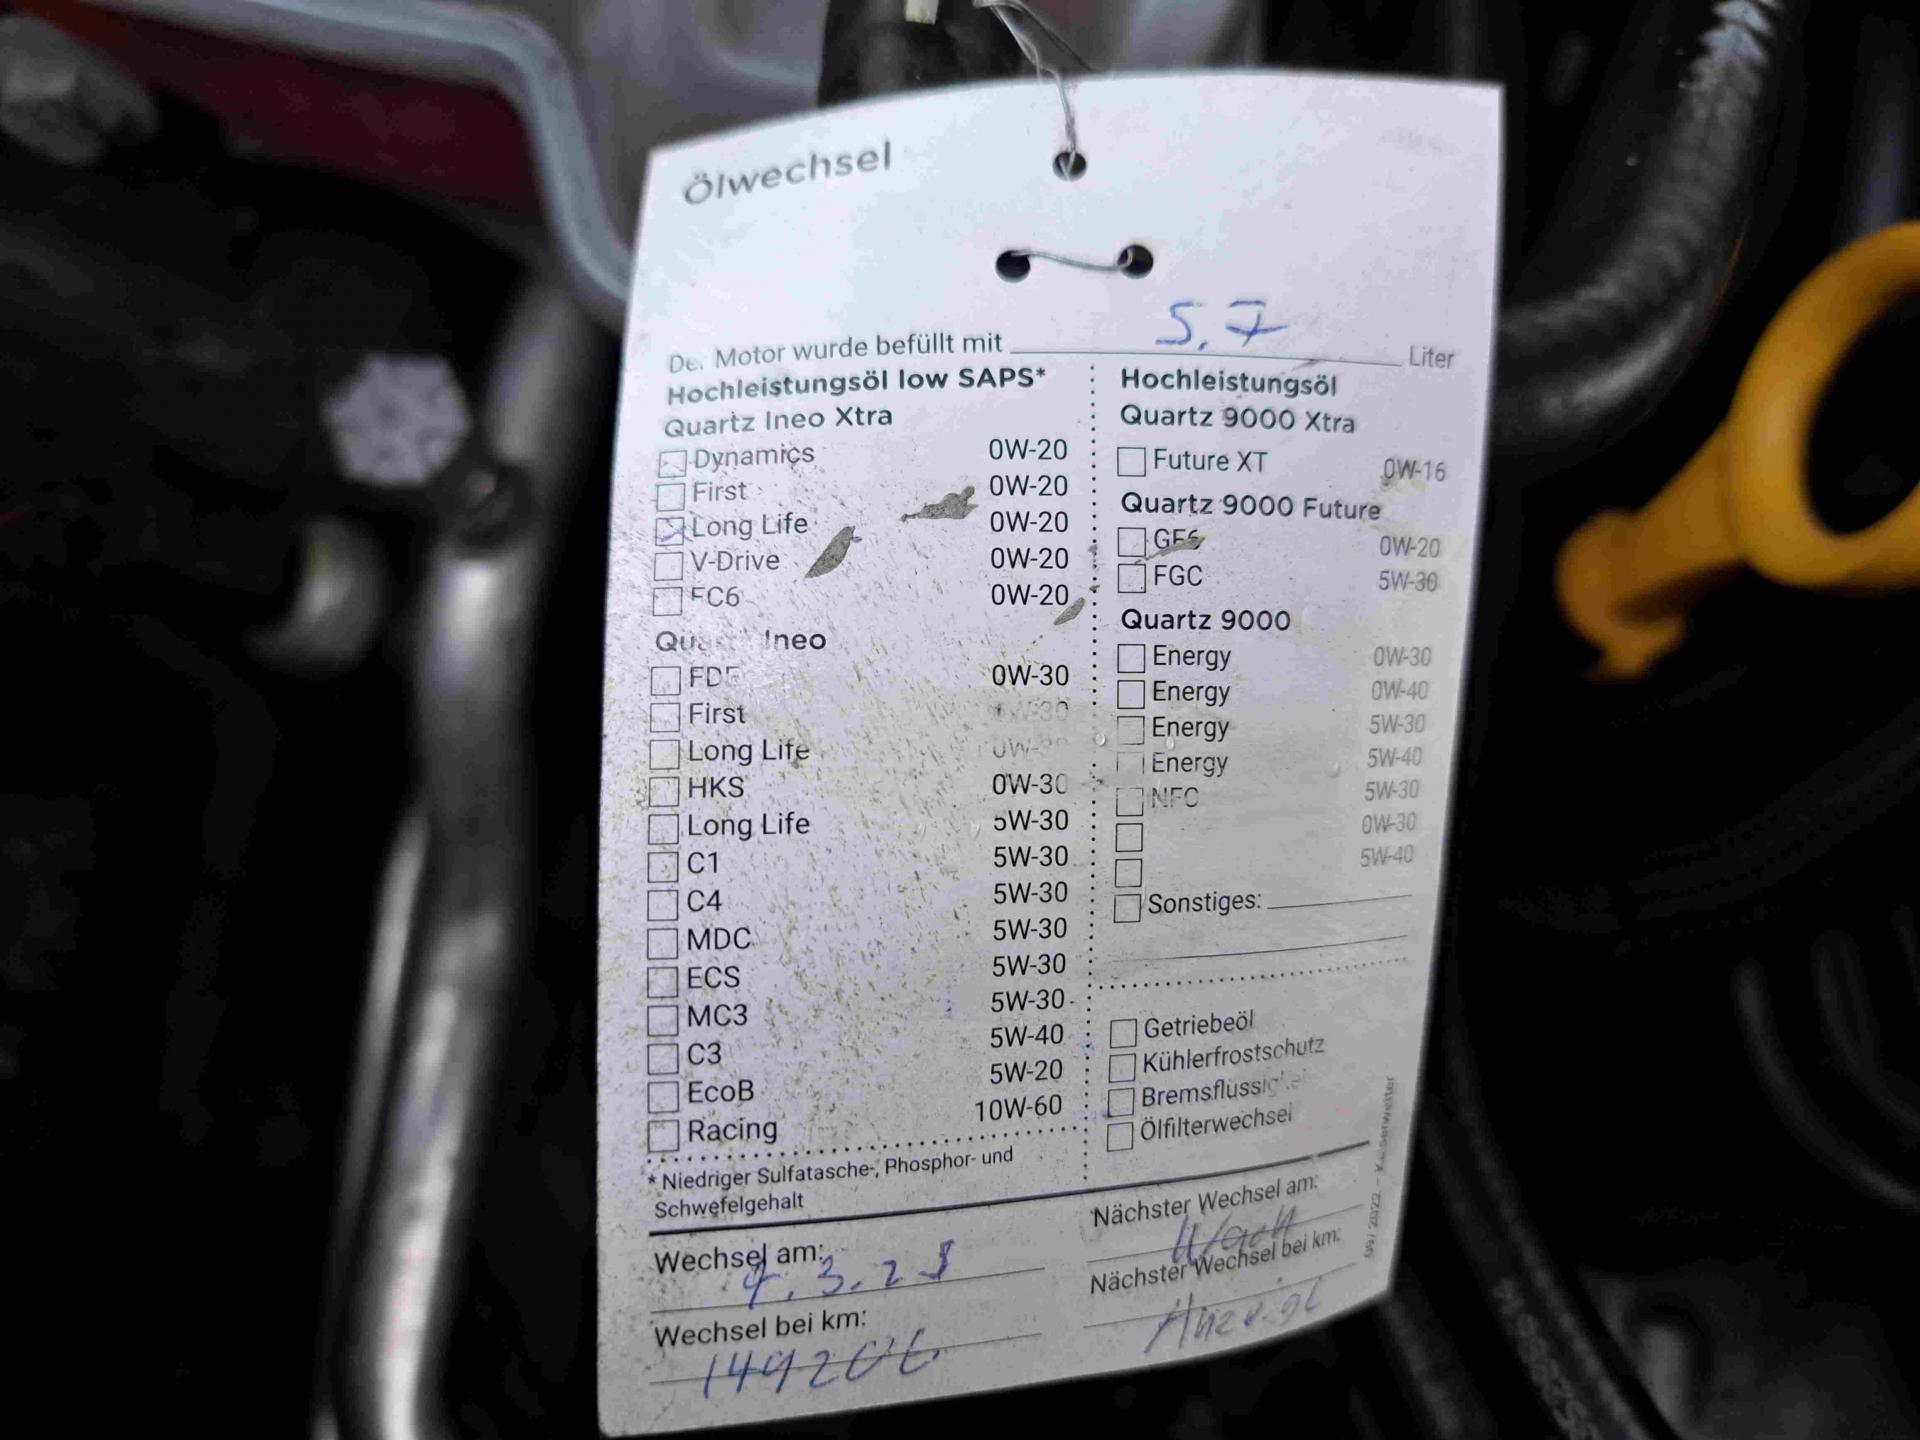 Ölwechsel
Der Motor wurde befüllt mit 5,7 Liter
Hochleistungsöl low SAPS*
Quartz Ineo Xtra
Dynamics 0W-20
First 0W-20
Long Life 0W-20
V-Drive 0W-20
FC6 0W-20
Quartz Ineo
FDE 0W-30
First 0W-30
Long Life 0W-30
HKS 0W-30
Long Life 5W-30
C1 5W-30
C4 5W-30
MDC 5W-30
ECS 5W-30
MC3 5W-30
C3 5W-40
EcoB 5W-20
Racing 10W-60
* Niedriger Sulfatasche-, Phosphor- und
Schwefelgehalt
Hochleistungsöl
Quartz 9000 Xtra
Future XT 0W-16
Quartz 9000 Future
GF6 0W-20
FGC 5W-30
Quartz 9000
Energy 0W-30
Energy 0W-40
Energy 5W-30
Energy 5W-40
NFC 5W-30
0W-30
5W-40
Sonstiges:
Getriebeöl
Kühlerfrostschutz
Bremsflüssigkei
Ölfilterwechsel
Wechsel am:
Wechsel bei km:
149206
Nächster Wechsel am:
Nach
Nächster Wechsel bei km: